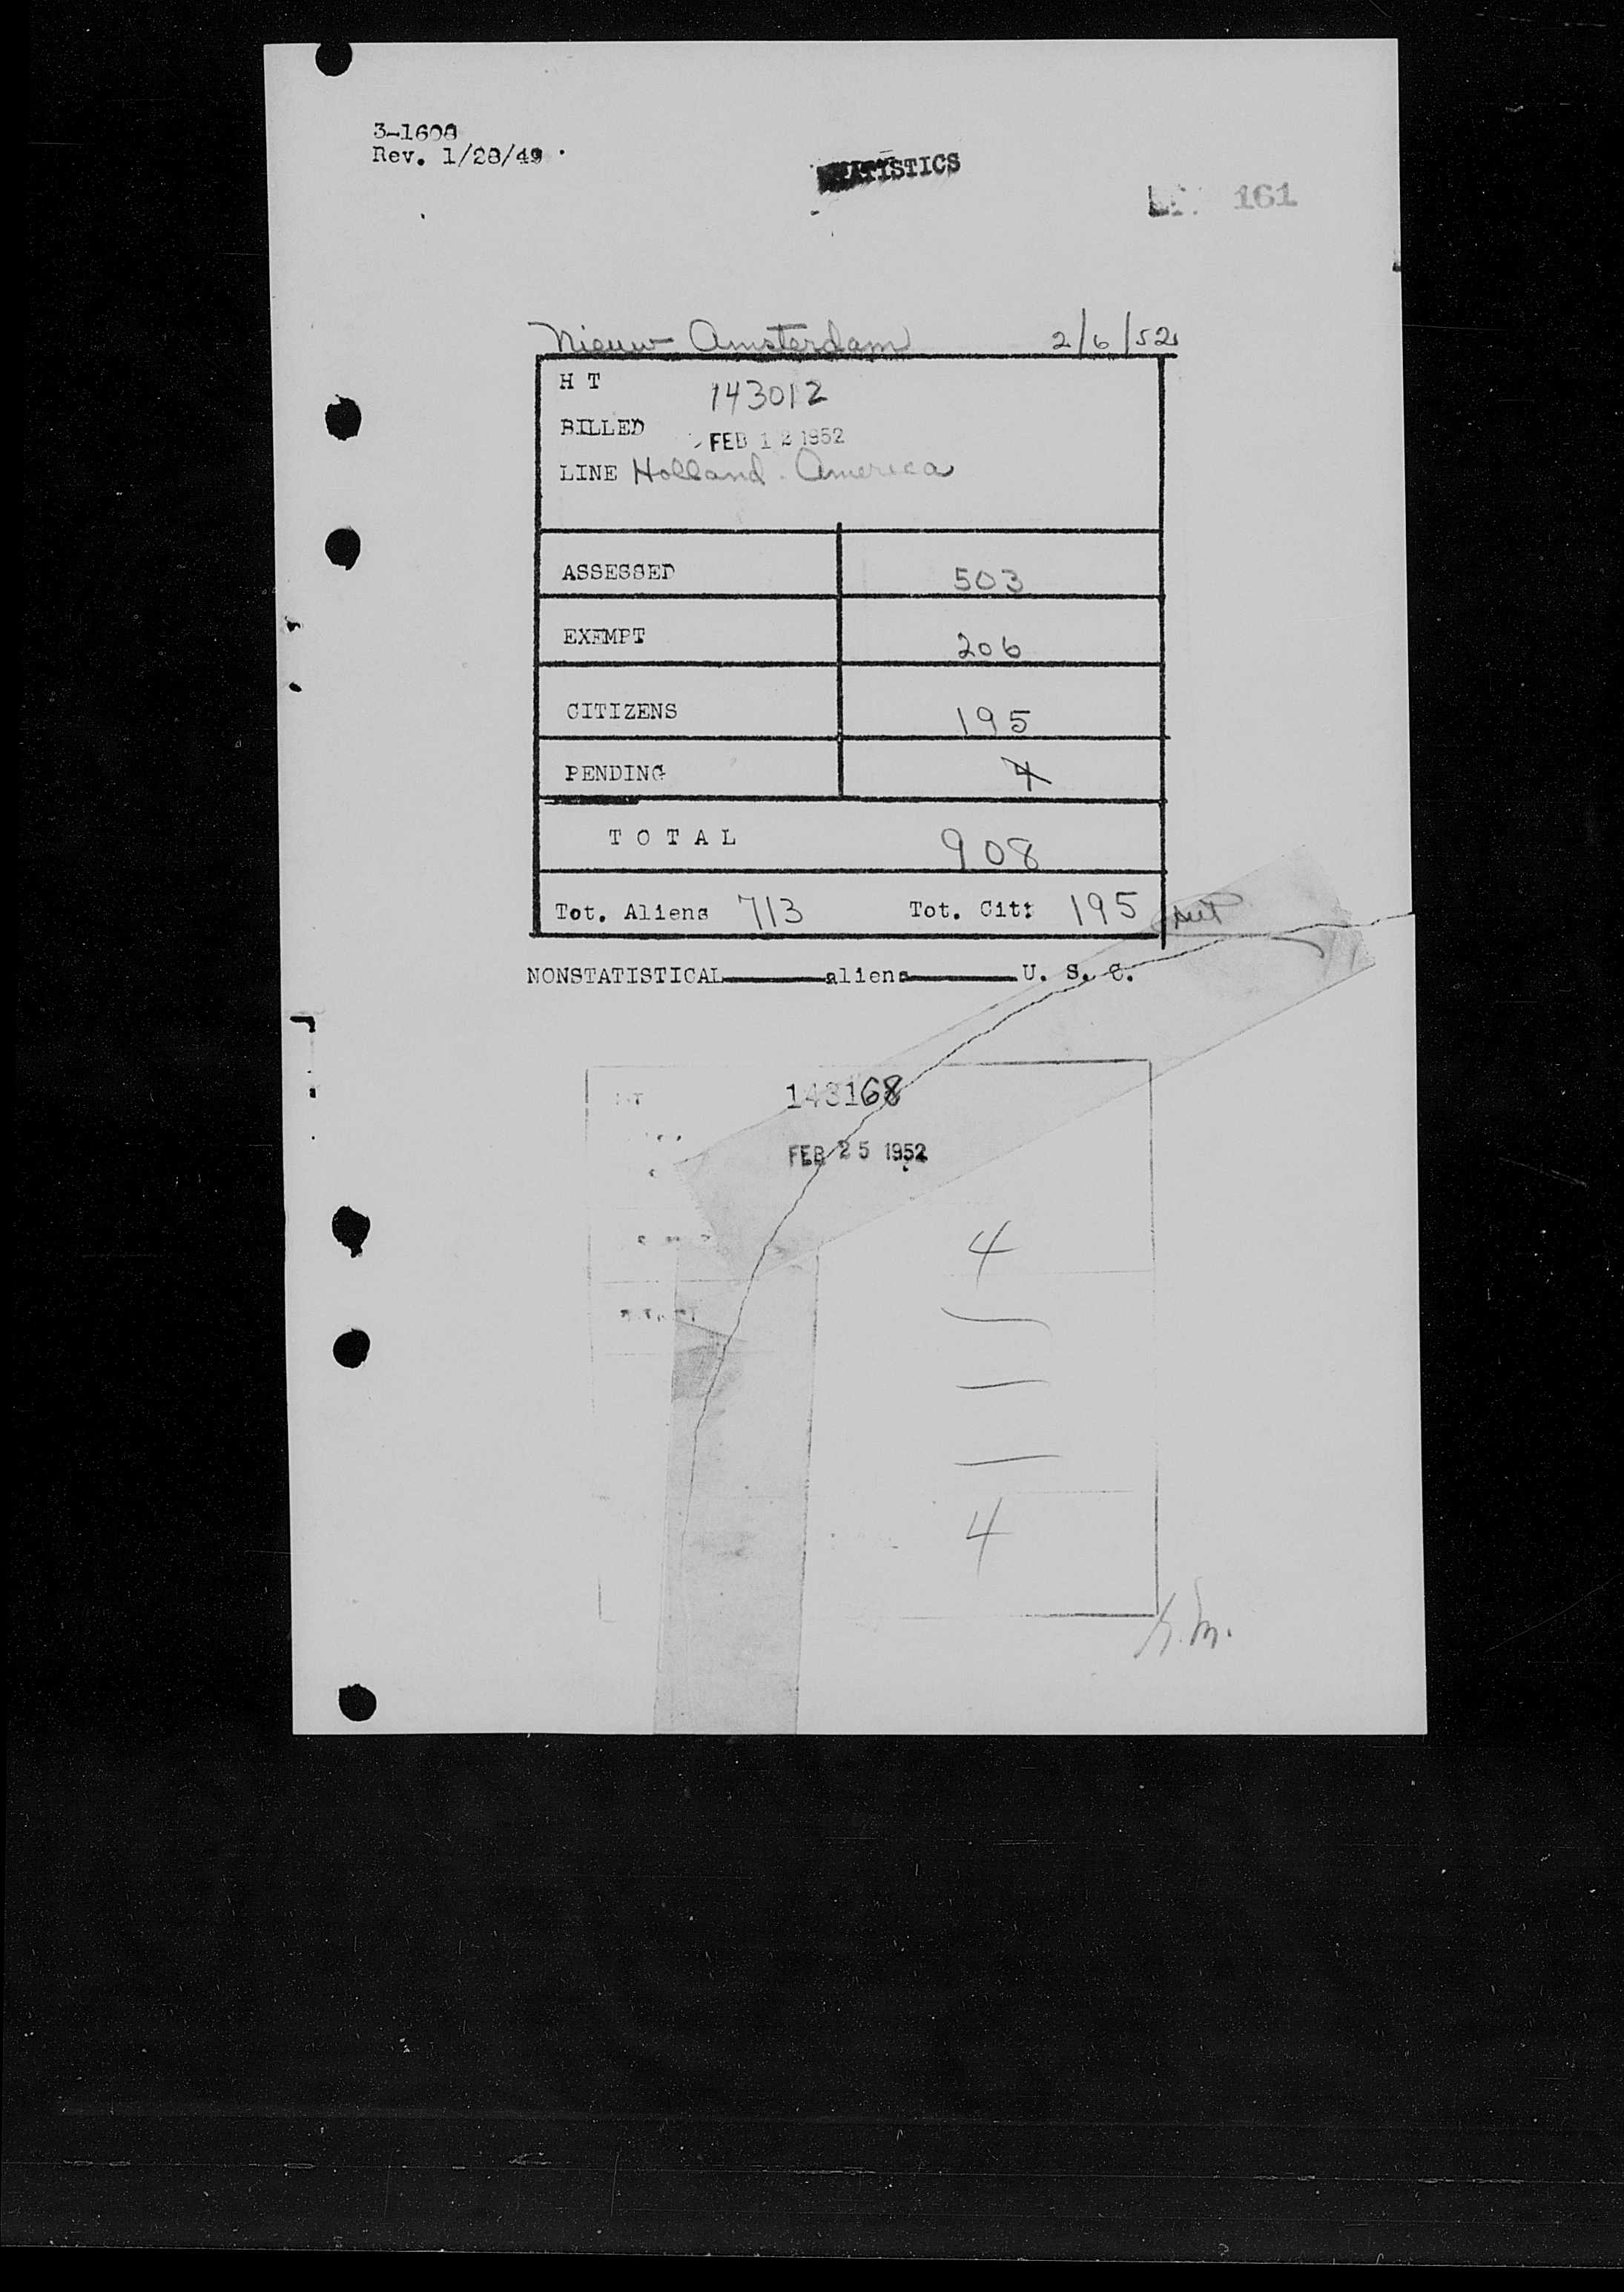 3-1608
Rev. 1/28/49
STATISTICS
161
Nieuw Amsterdam 2/6/52
H T 143012
BILLED FEB 12 1952
LINE Holland-America
ASSESSED 503
EXEMPT 206
CITIZENS 195
PENDING 4
T O T A L 908
Tot. Aliens 713 Tot. Cit: 195
NONSTATISTICAL aliens U. S. C.
143168
FEB 25 1952
4
4